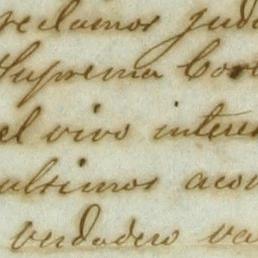 reclamos juda
Suprema Cor
el vivo interes
ultimos acon
verdadero va